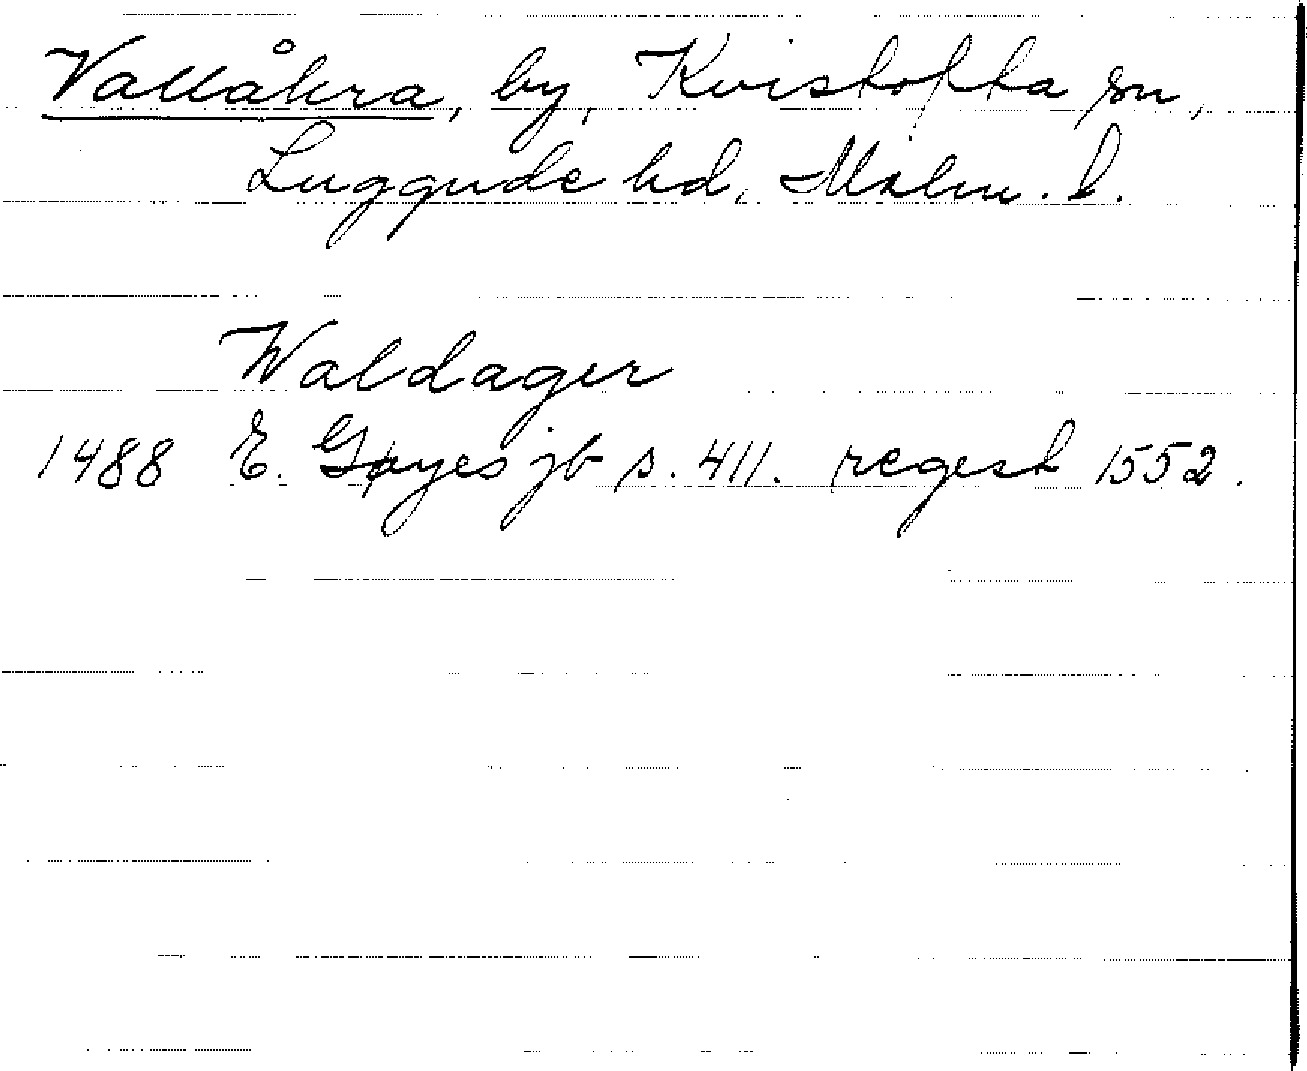 Vallåkra, by, Kvistofta sn,
Luggude hd, Malm. l.
Waldager
1488 E. Gøyes jb s. 411. regest 1552.